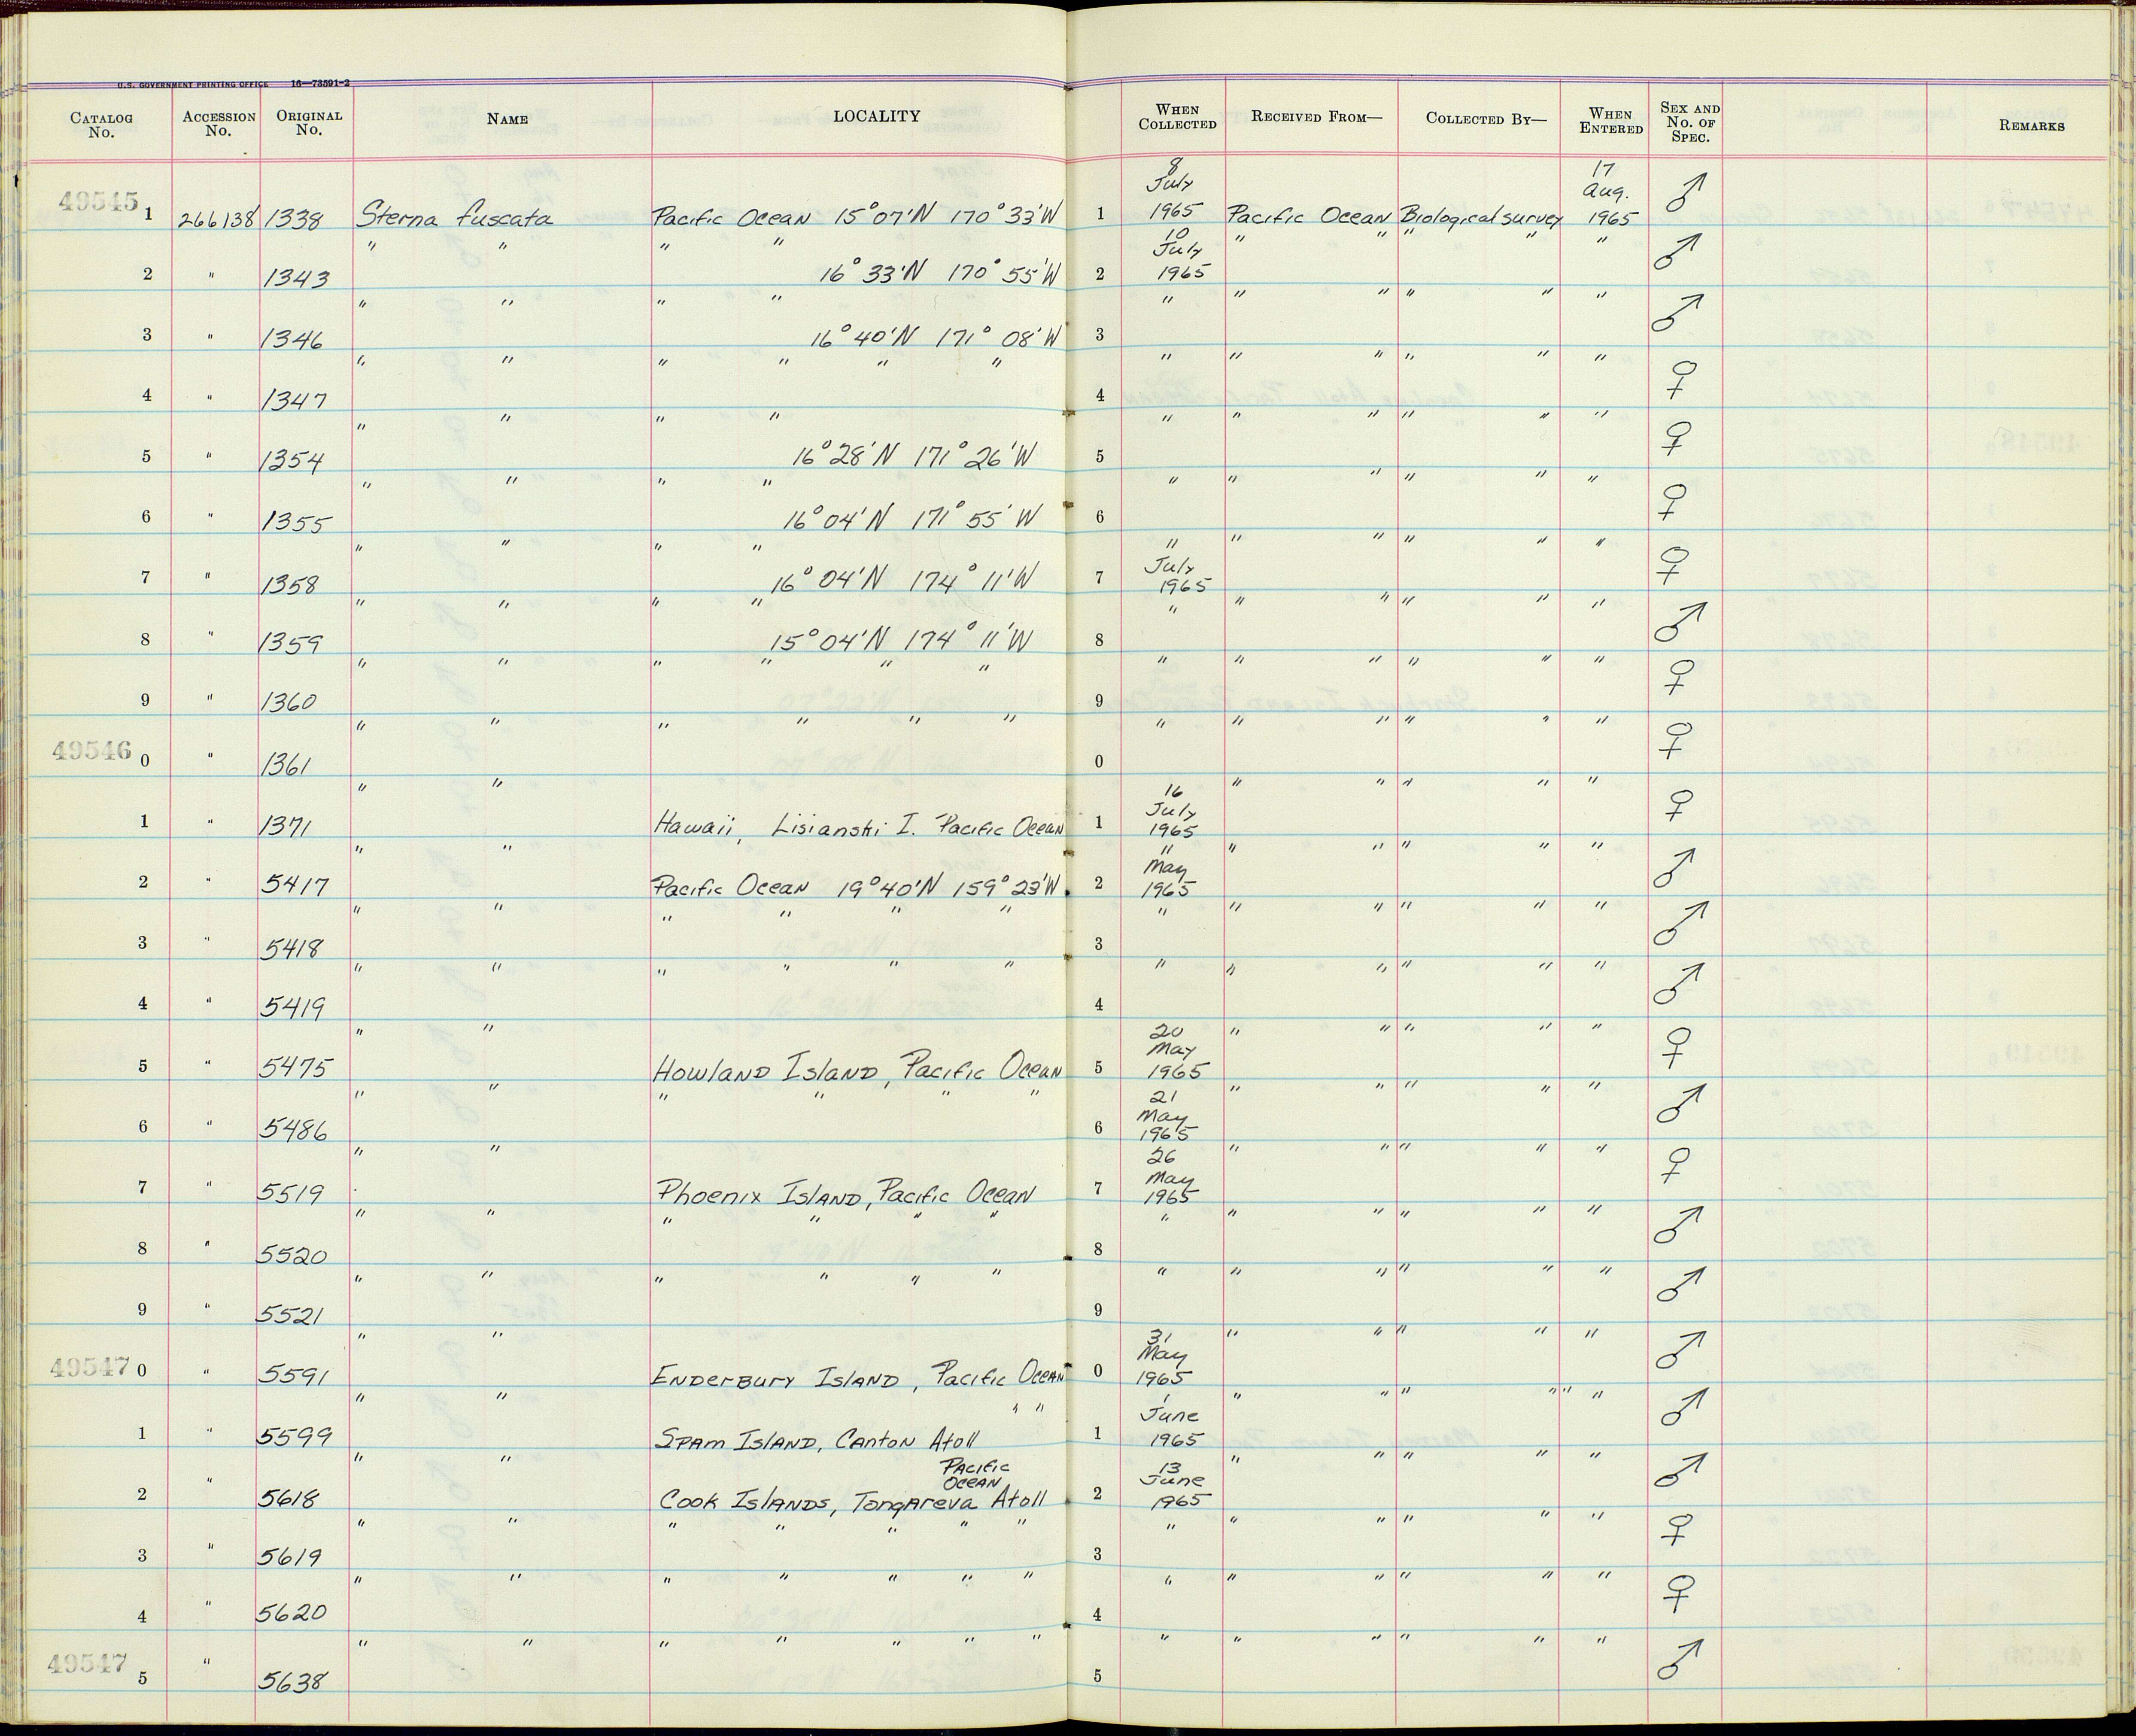 U.S. GOVERNMENT PRINTING OFFICE 16—73591-2
CATALOG No. ACCESSION No. ORIGINAL No. NAME LOCALITY WHEN COLLECTED RECEIVED FROM— COLLECTED BY— WHEN ENTERED SEX AND No. OF SPEC. REMARKS
49545 1 266138 1338 Sterna fuscata Pacific Ocean 15°07'N 170°33'W 1 8 July 1965 Pacific Ocean Biological survey 17 Aug. 1965 ♂
2 " 1343 " " " " 16°33'N 170°55'W 2 10 July 1965 " " " " " ♂
3 " 1346 " " " " 16°40'N 171°08'W 3 " " " " " " ♂
4 " 1347 " " " " " " 4 " " " " " " ♀
5 " 1354 " " " " 16°28'N 171°26'W 5 " " " " " " ♀
6 " 1355 " " " " 16°04'N 171°55'W 6 " " " " " " ♀
7 " 1358 " " " " 16°04'N 174°11'W 7 11 July 1965 " " " " " ♀
8 " 1359 " " " " 15°04'N 174°11'W 8 " " " " " " ♂
9 " 1360 " " " " " " 9 " " " " " " ♀
49546 0 " 1361 " " " " " " 0 " " " " " " ♀
1 " 1371 " " Hawaii, Lisianski I. Pacific Ocean 1 16 July 1965 " " " " " ♀
2 " 5417 " " Pacific Ocean 19°40'N 159°23'W 2 11 May 1965 " " " " " ♂
3 " 5418 " " " " " " 3 " " " " " " ♂
4 " 5419 " " " " " " 4 " " " " " " ♂
5 " 5475 " " Howland Island, Pacific Ocean 5 20 May 1965 " " " " " ♀
6 " 5486 " " " " " " 6 21 May 1965 " " " " " ♂
7 " 5519 " " Phoenix Island, Pacific Ocean 7 26 May 1965 " " " " " ♀
8 " 5520 " " " " " " 8 " " " " " " ♂
9 " 5521 " " " " " " 9 " " " " " " ♂
49547 0 " 5591 " " Enderbury Island, Pacific Ocean 0 31 May 1965 " " " " " ♂
1 " 5599 " " Spam Island, Canton Atoll " " 1 1 June 1965 " " " " " ♂
2 " 5618 " " Cook Islands, Tongareva Atoll Pacific Ocean 2 13 June 1965 " " " " " ♂
3 " 5619 " " " " " " " 3 " " " " " " ♀
4 " 5620 " " " " " " " 4 " " " " " " ♀
49547 5 " 5638 " " " " " " " 5 " " " " " " ♂